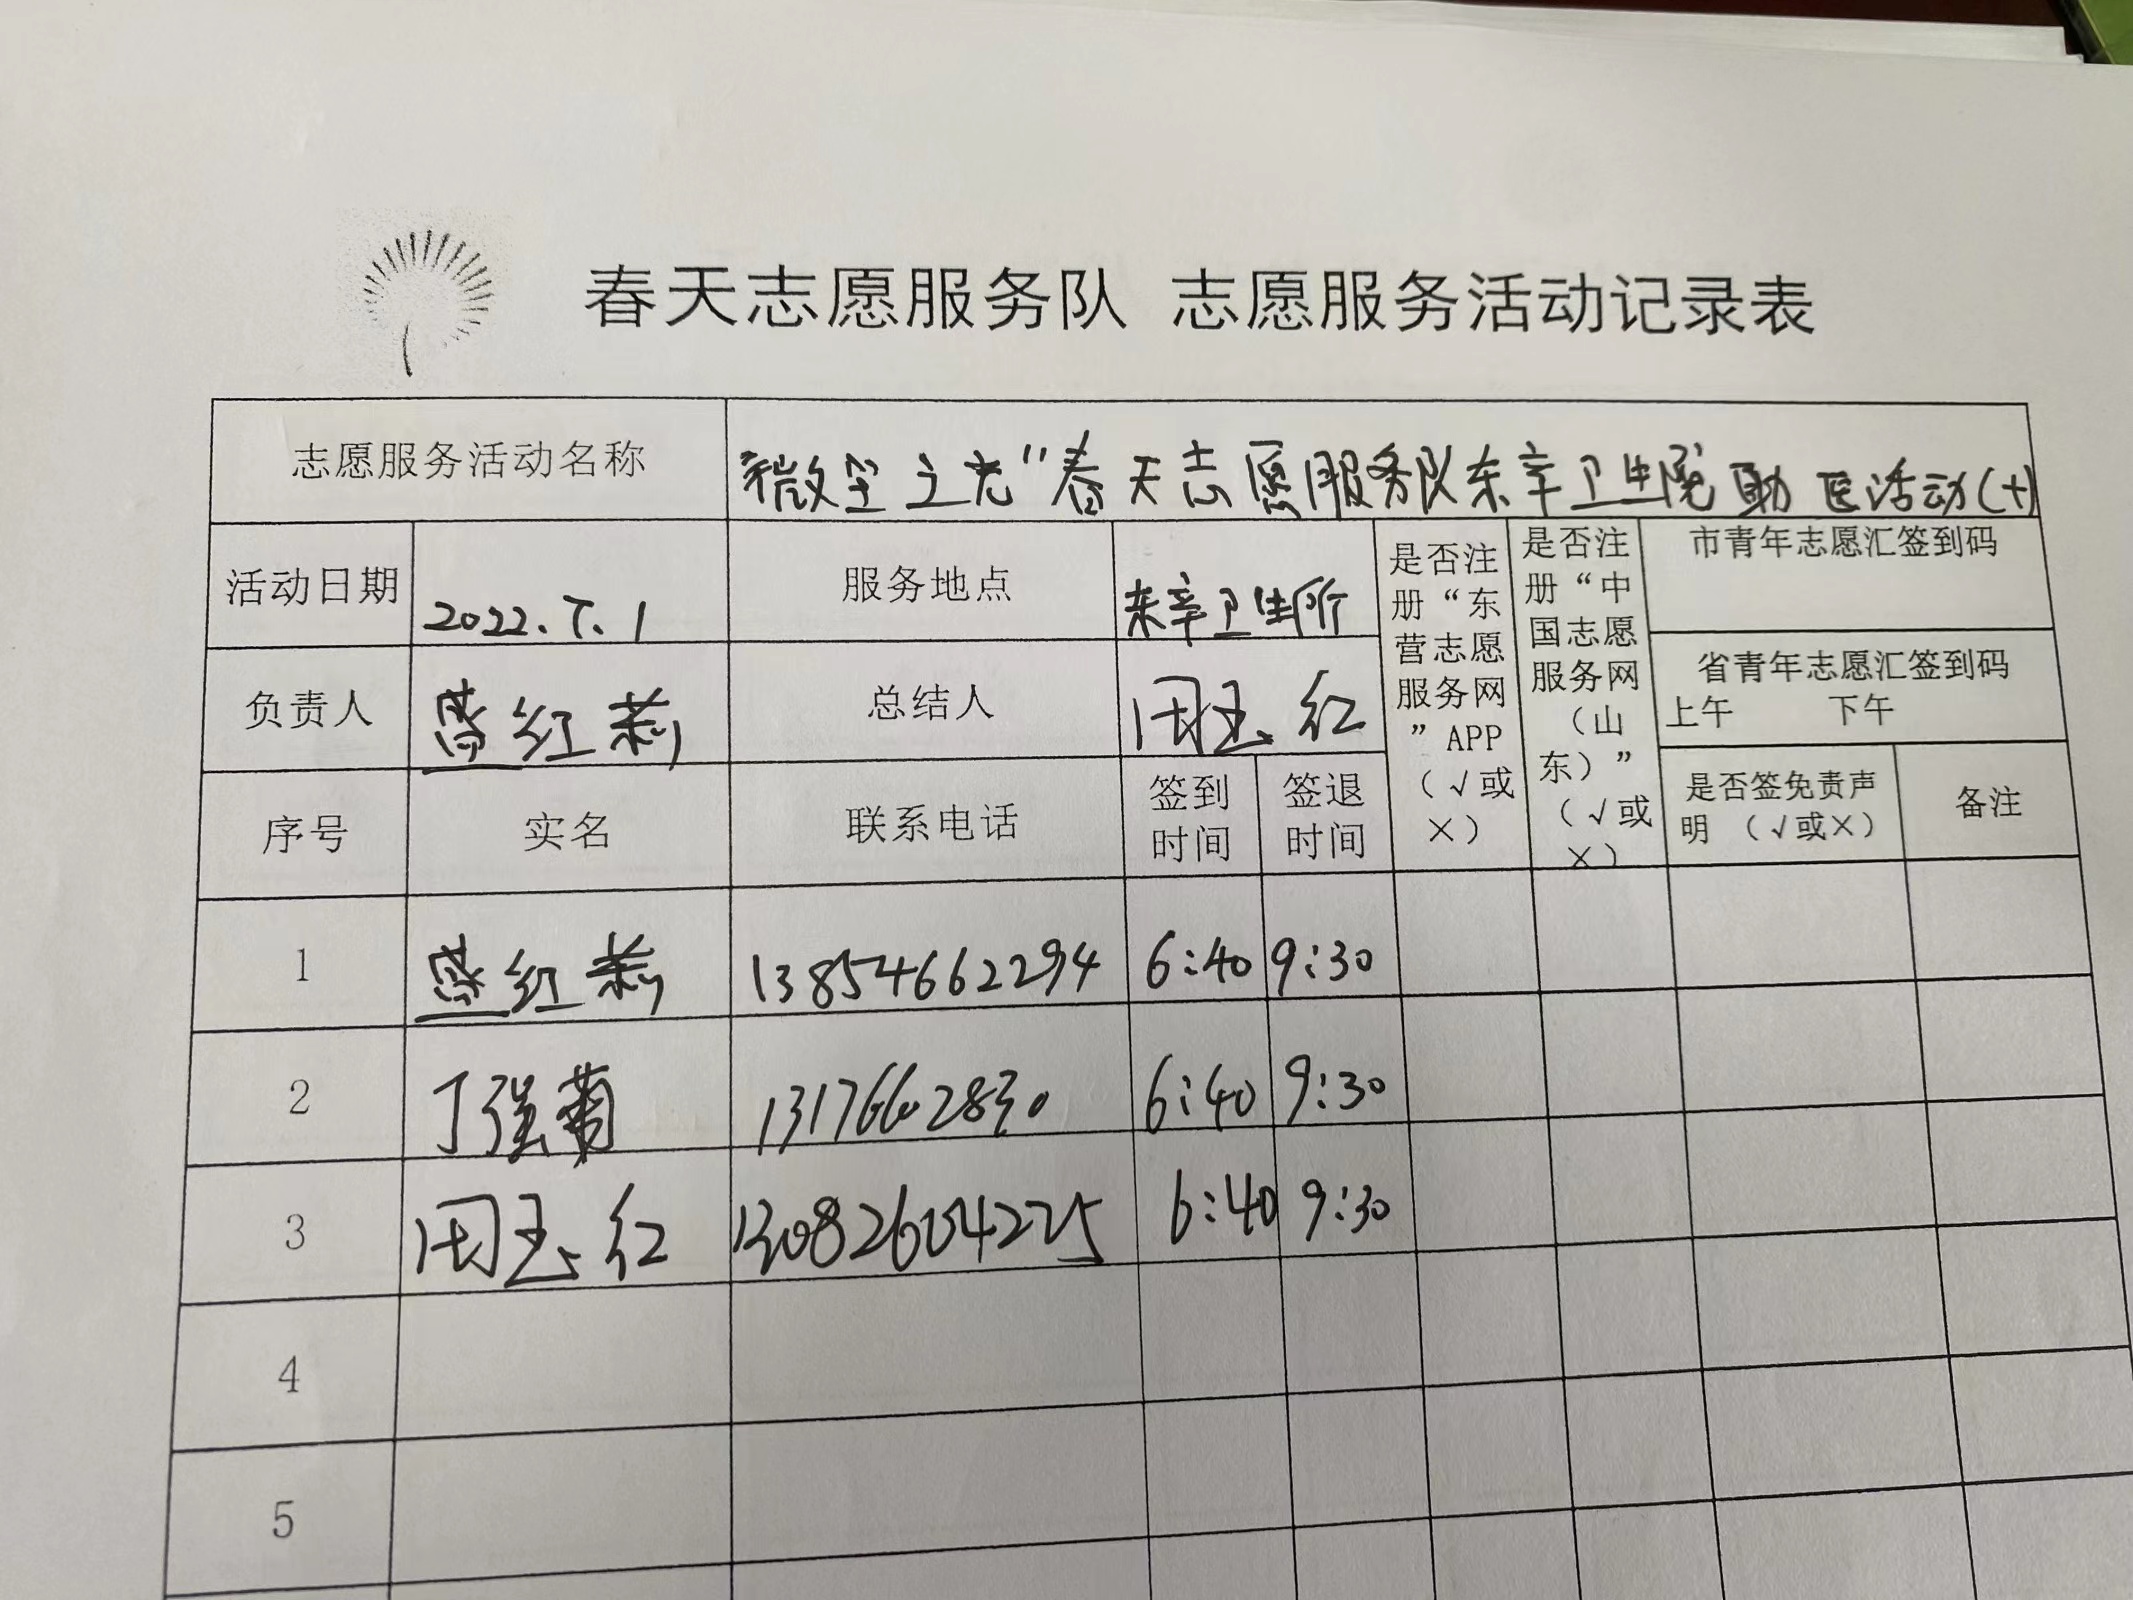 春天志愿服务队 志愿服务活动记录表
志愿服务活动名称 "微尘之光"春天志愿服务队东辛卫生院助医活动(十)
活动日期 2022.7.1 服务地点 东辛卫生所
是否注册“东营志愿服务网”APP（√或×）
是否注册“中国志愿服务网（山东）”（√或×）
市青年志愿汇签到码
省青年志愿汇签到码
上午 下午
负责人 红莉 总结人 周玉红
序号 实名 联系电话 签到时间 签退时间 是否签免责声明（√或×） 备注
1 红莉 13854662294 6:40 9:30
2 丁强 6:40 9:30
3 周玉红 6:40 9:30
4
5